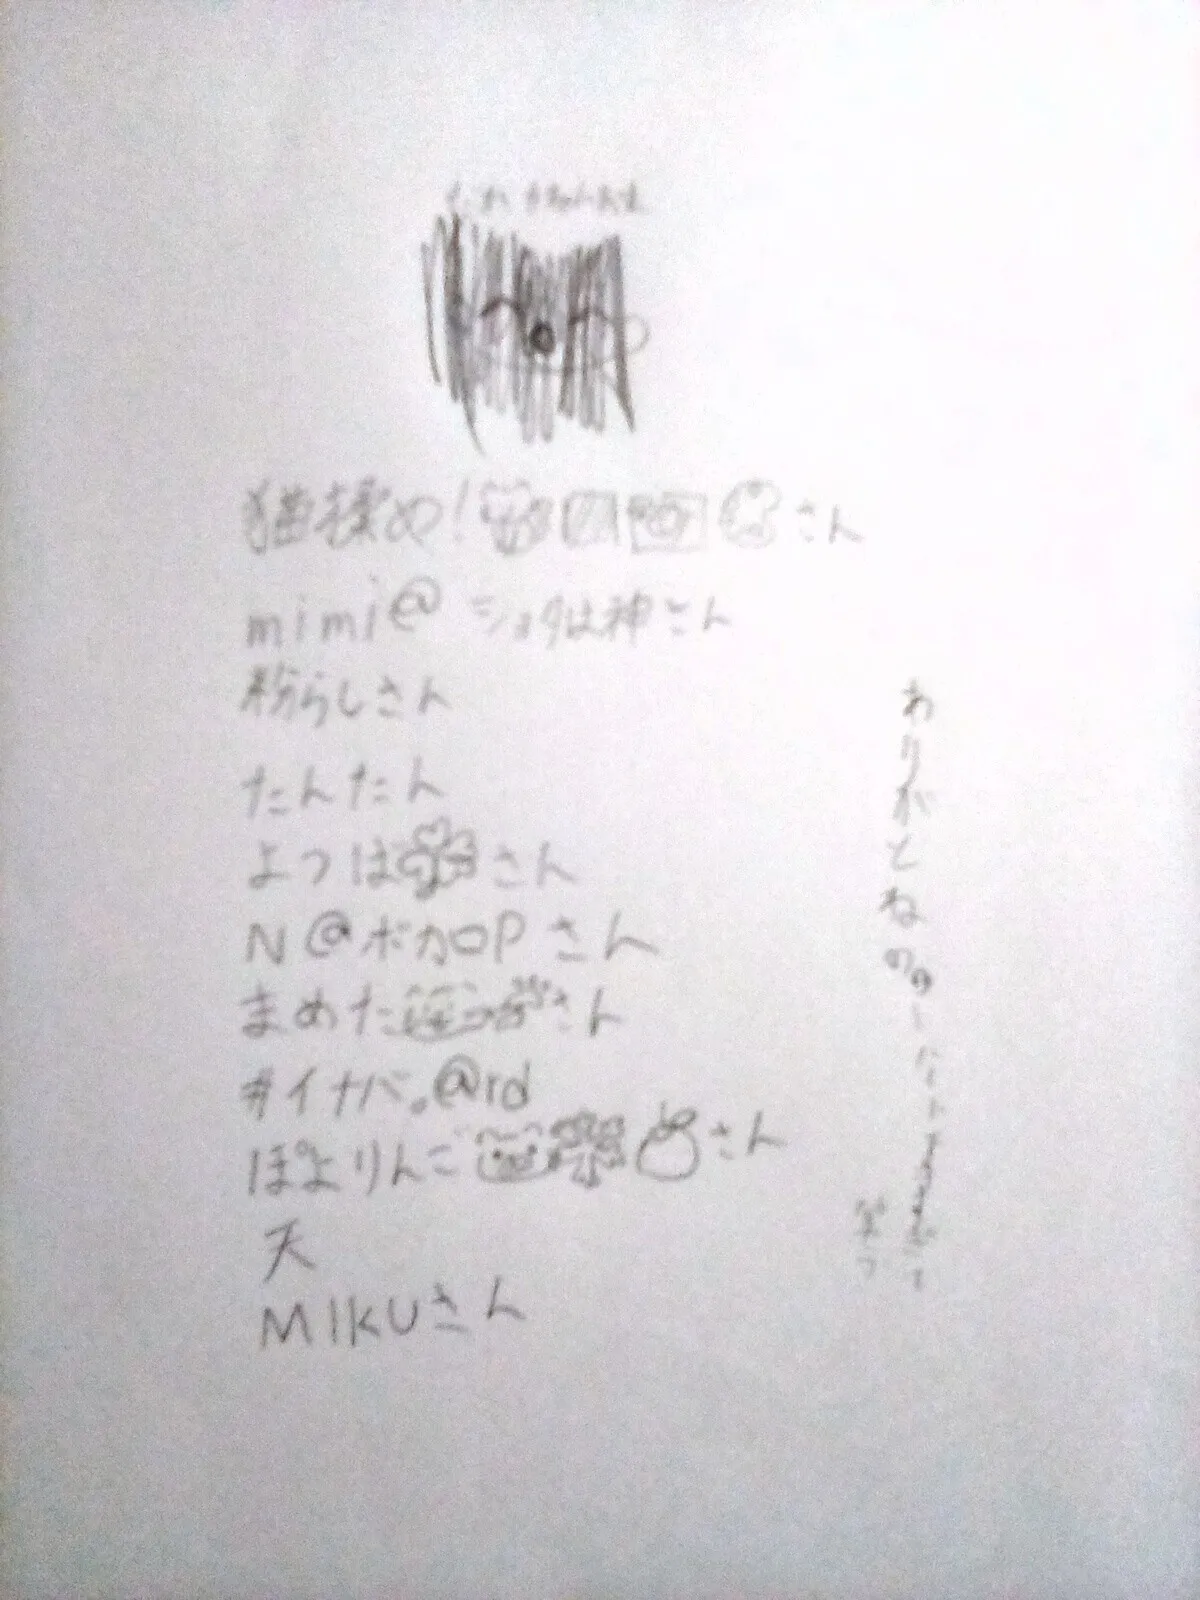 猫様め!さん
mimi@ ショタは神さん
粉らしさん
たんたん
よつは🍀さん
N@ボカロPさん
まめたさん
#イナバ。@rd
ぽよりんごさん
天
MIKUさん
ありがとね
笑う